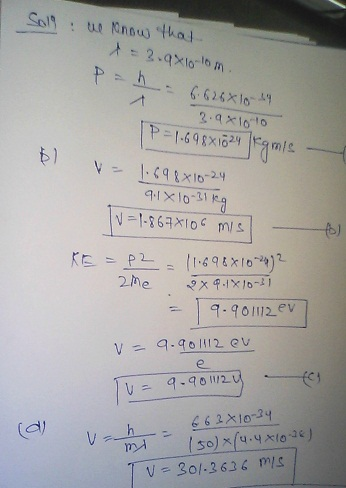 Soln : we know that
λ = 3.9×10-10 m.
P = h/λ = 6.626×10-34 / 3.9×10-10
P = 1.698×10-24 kg m/s
b) V = 1.698×10-24 / 9.1×10-31 kg
V = 1.867×106 m/s — (b)
KE = P2/2me = (1.698×10-24)2 / 2×9.1×10-31
= 9.901112 eV
V = 9.901112 eV / e
V = 9.901112 V — (c)
(d) V = h/mλ = 663×10-34 / (50)×(4.4×10-36)
V = 301.3636 m/s